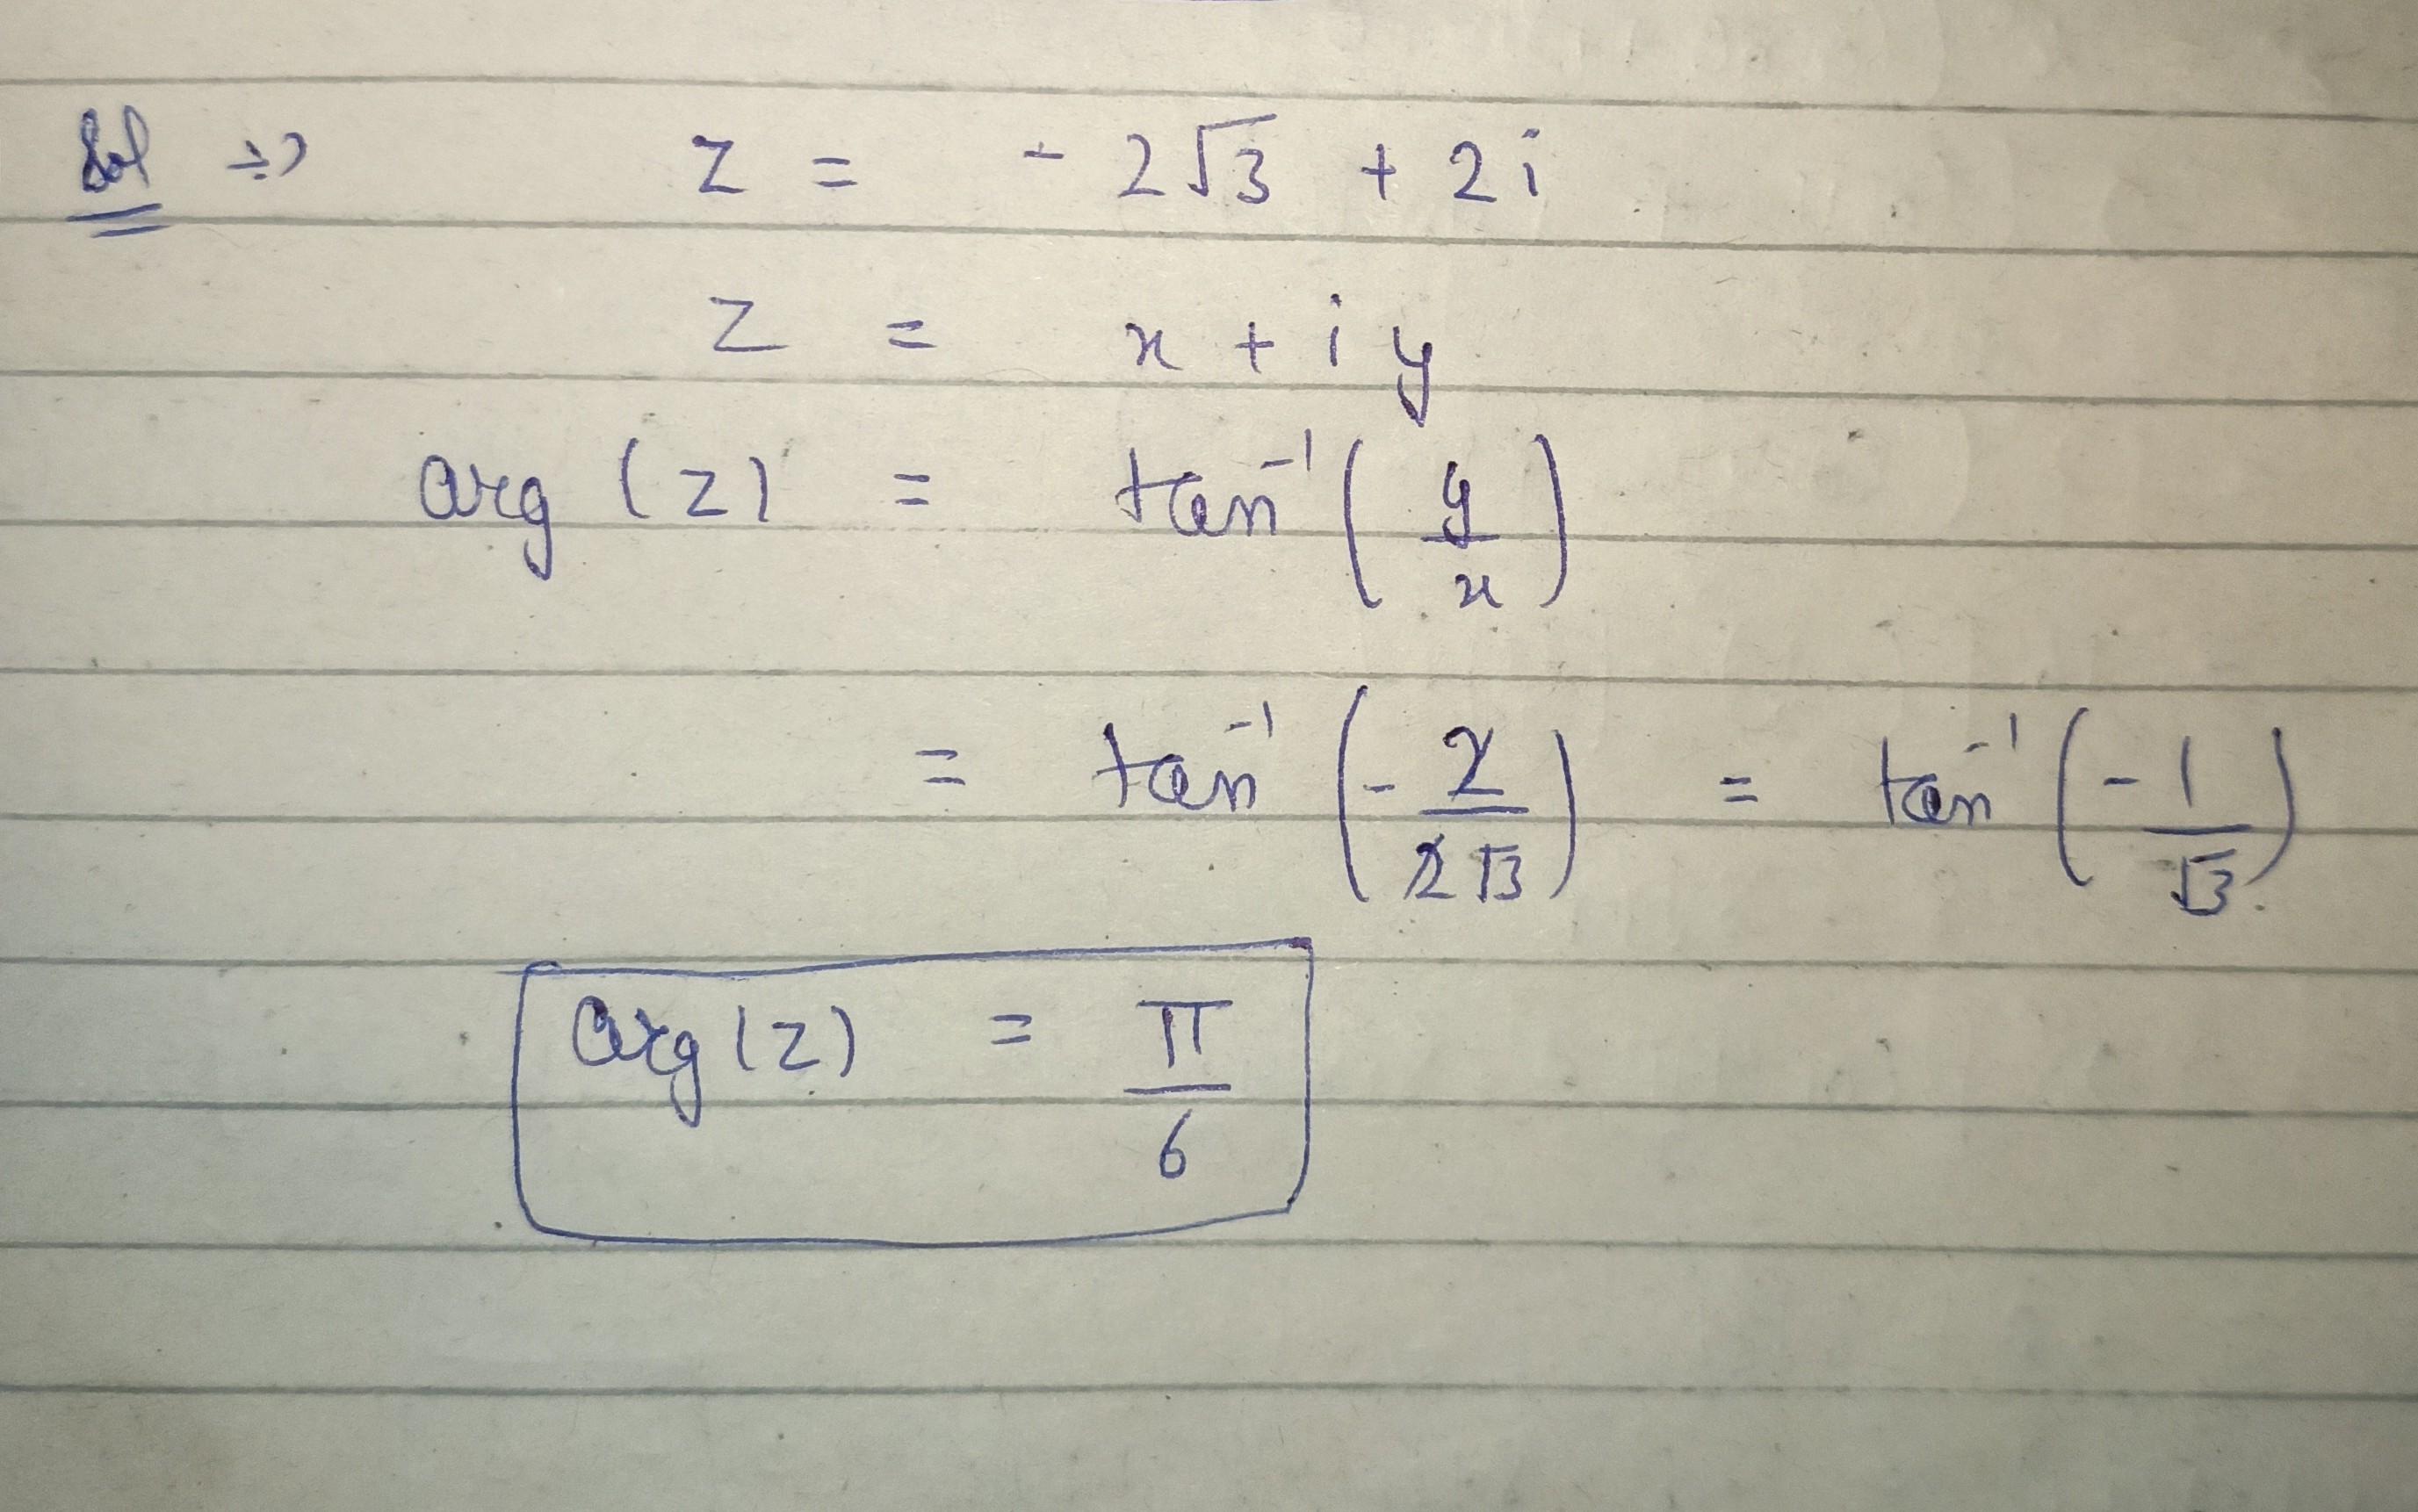 Sol :-> z = - 2√3 + 2i
z = x + i y
arg (z) = tan⁻¹ (y/x)
= tan⁻¹ (- 2/2√3) = tan⁻¹ (- 1/√3)
arg(z) = π/6